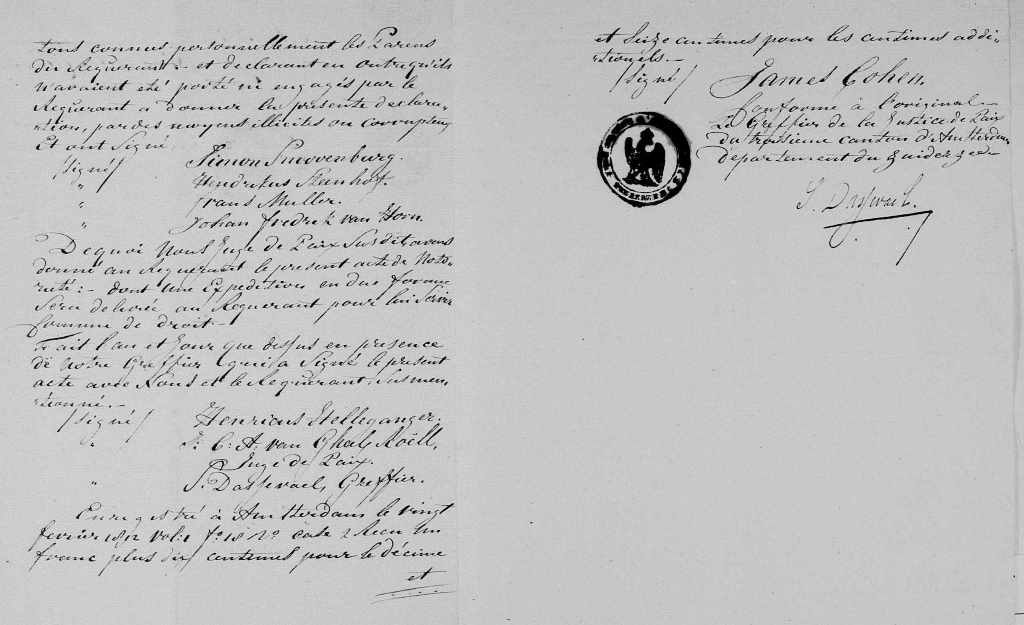 tous connus personnellement les Parens
du Requerant:- et declarant en outre qu'ils
n'avaient été porté ni engagés par le
Requerant a donner la presente declara-
-tion, par des moyens illicites ou corrupteurs
Et ont Signé
/signé/ Simon Snoevenburg.
" Hendrikus Steenhoff.
" Frans Muller.
" Johan fredrik van Horn.
De quoi Nous Juge de Paix Susdit avons
donné au Requerant le present acte de Noto-
rieté:- dont une Expedition en due forme
Sera delivrée au Requerant pour lui Servir
Comme de droit-
Fait l'an et Jour que dessus en presence
de Notre Greffier qui a Signé le present
acte avec Nous et le Requerant Susmen
-tionné.-
/signé/ Henricus Helleganger.
J: C: A. van Ghals Roëll,
Juge de Paix.
" S. Dassevael, Greffier.
Enregistré à Amsterdam le vingt
fevrier 1812 vol: 1 fo. 18 Vo case 2 Recu un
franc plus dix centimes pour le décime
et
et Seize centimes pour les centimes addi-
-tionels.-
/signé/ James Cohen.
Conforme à l'original-
Le Greffier de la Justice de Paix
du troisieme canton d'Amsterdam
departement du Zuiderzee-
S. Dassevael.